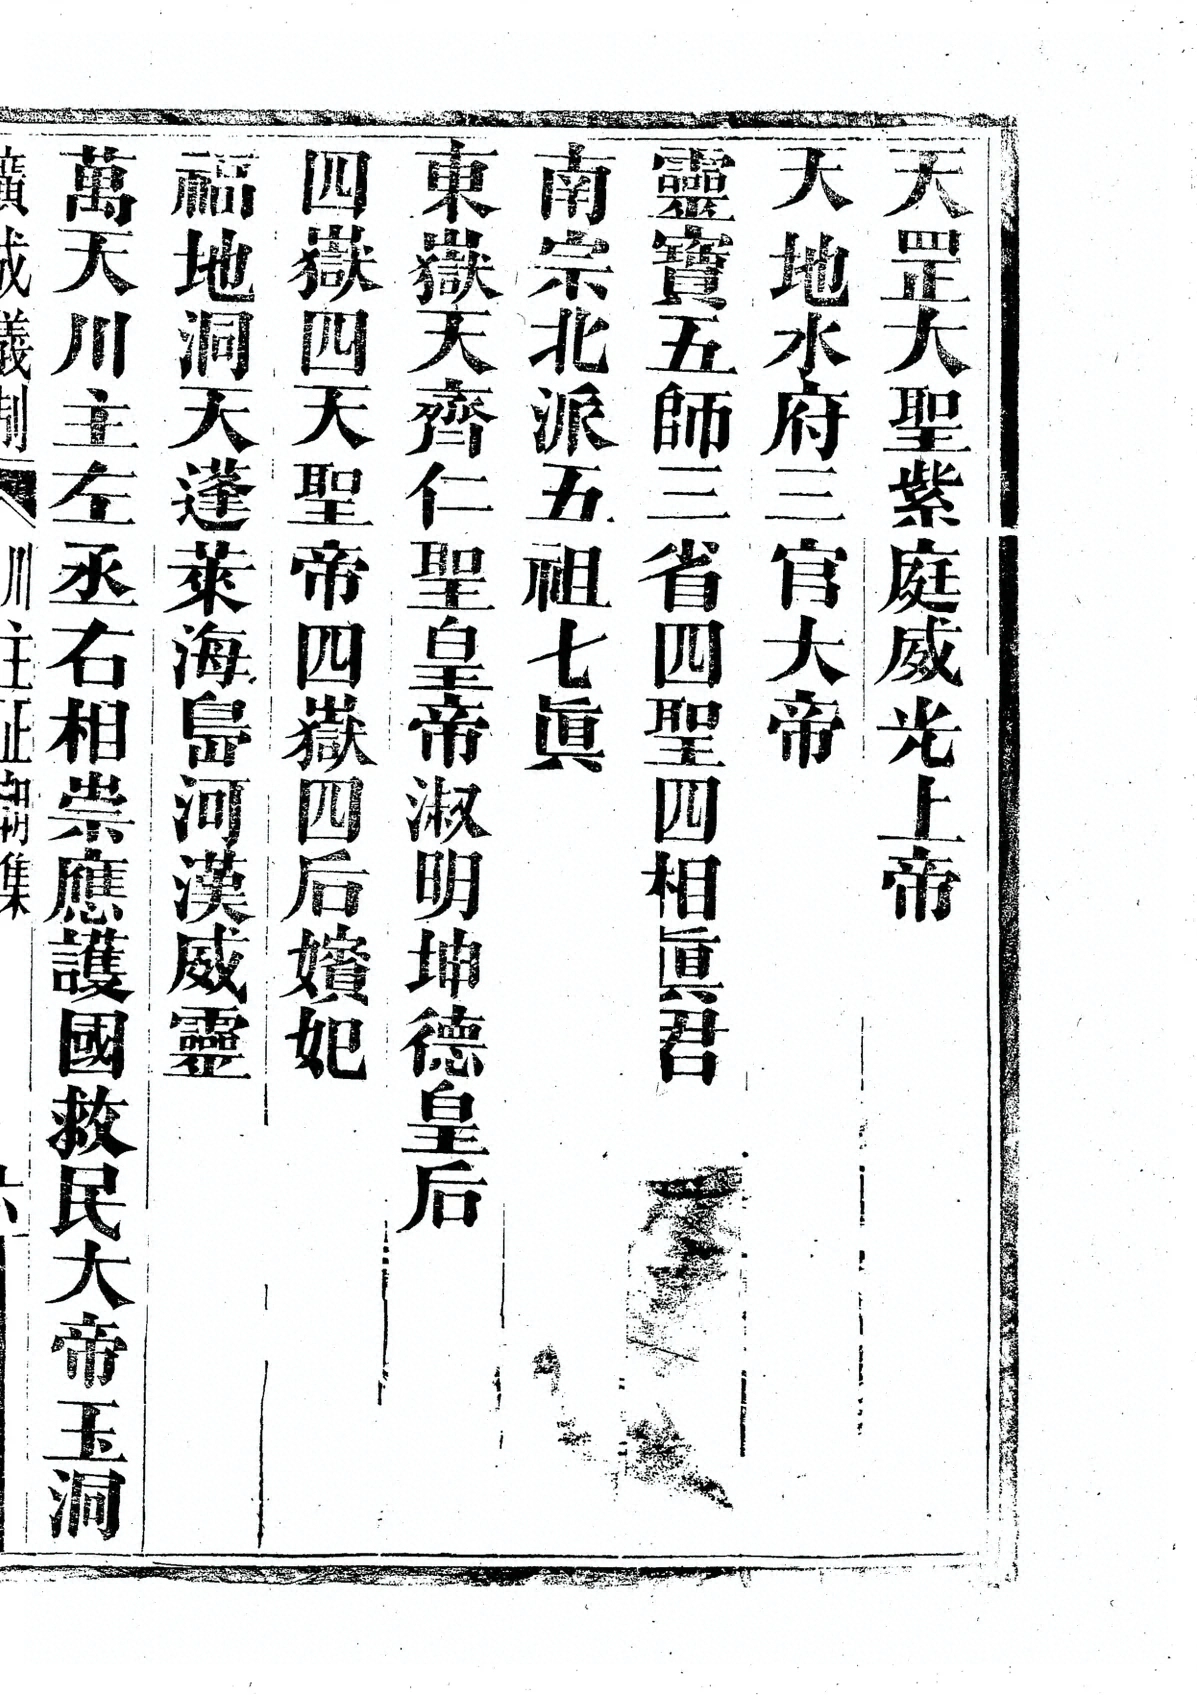 天罡大聖紫庭威光上帝
天地水府三官大帝
靈寶五師三省四聖四相眞君
南宗北派五祖七眞
東嶽天齊仁聖皇帝淑明坤德皇后
四嶽四天聖帝四嶽四后嬪妃
福地洞天蓬萊海島河漢威靈
萬天川主左丞右相崇應護國救民大帝玉洞
廣成儀制 川主正朝集 六